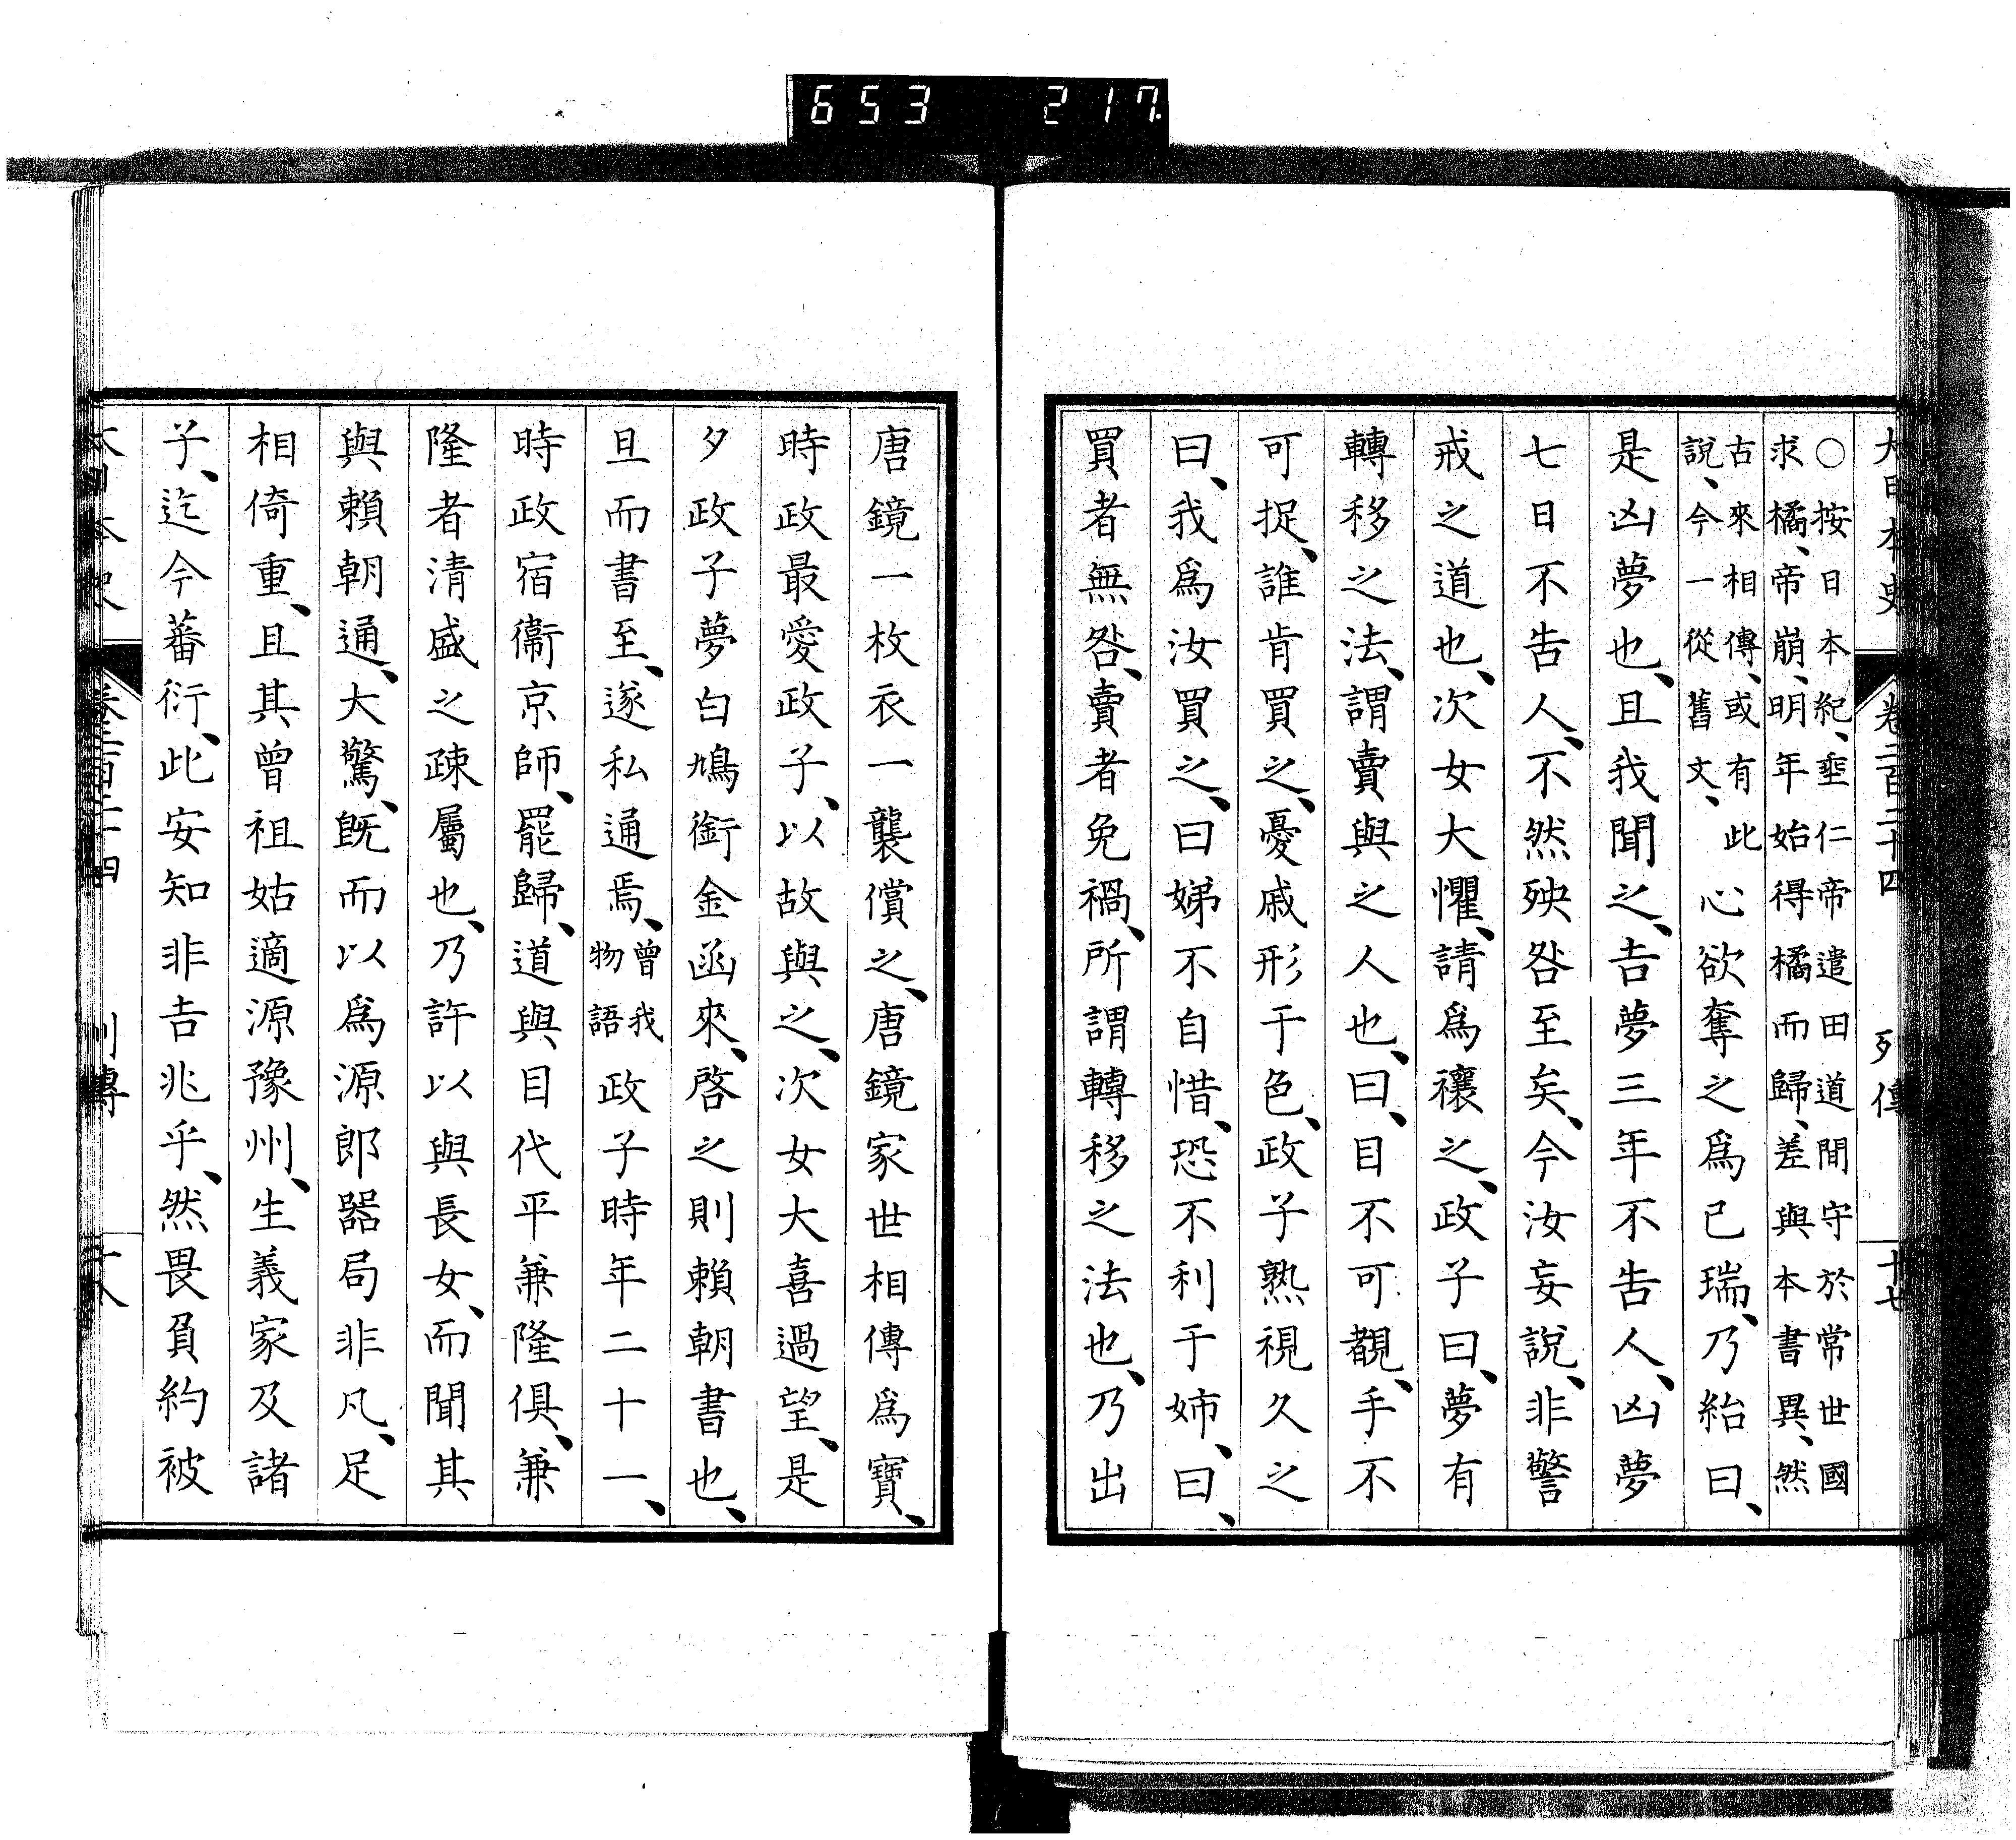 653 217
大日本史 卷二百二十四 列傳 十七
○按日本紀、垂仁帝遣田道間守於常世國
求橘、帝崩、明年始得橘而歸、差與本書異、然
古來相傳、或有此
說、今一從舊文、
心欲奪之爲己瑞、乃紿曰、
是凶夢也、且我聞之、吉夢三年不告人、凶夢
七日不告人、不然殃咎至矣、今汝妄說、非警
戒之道也、次女大懼、請爲禳之、政子曰、夢有
轉移之法、謂賣與之人也、曰、目不可覩、手不
可捉、誰肯買之、憂戚形于色、政子熟視久之
曰、我爲汝買之、曰娣不自惜、恐不利于姉、曰、
買者無咎、賣者免禍、所謂轉移之法也、乃出
唐鏡一枚衣一襲償之、唐鏡家世相傳爲寶、
時政最愛政子、以故與之、次女大喜過望、是
夕政子夢白鳩銜金函來、啓之則賴朝書也、
旦而書至、遂私通焉、曾我
物語
政子時年二十一、
時政宿衞京師、罷歸、道與目代平兼隆俱、兼
隆者清盛之疎屬也、乃許以與長女、而聞其
與賴朝通、大驚、既而以爲源郎器局非凡、足
相倚重、且其曾祖姑適源豫州、生義家及諸
子、迄今蕃衍、此安知非吉兆乎、然畏負約被
大日本史 卷二百二十四 列傳